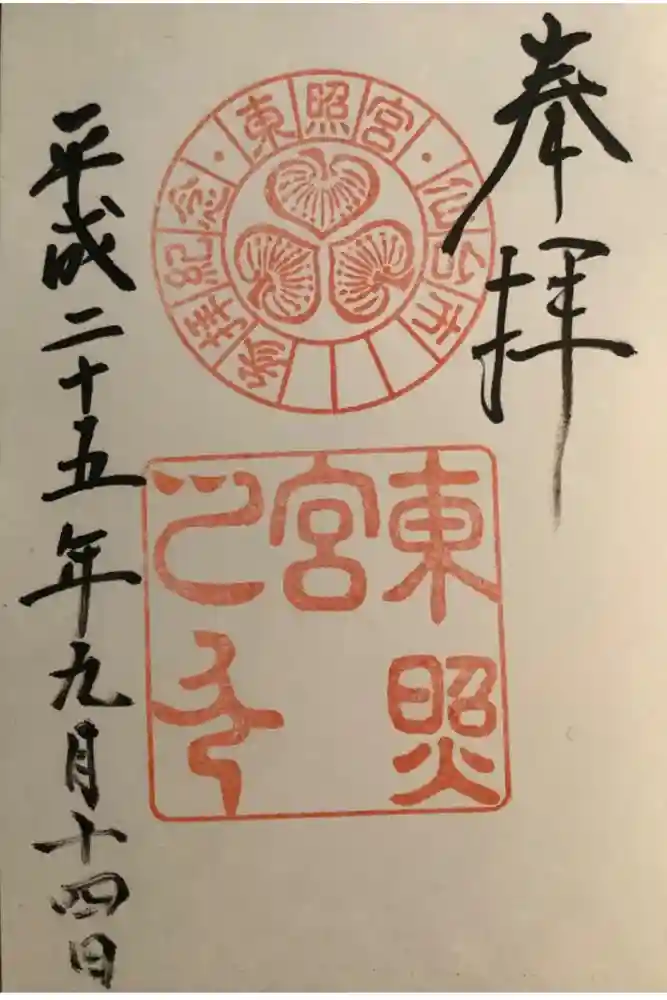 奉拝
仙台市・東照宮・参拝紀念
東照宮之印
平成二十五年九月十四日